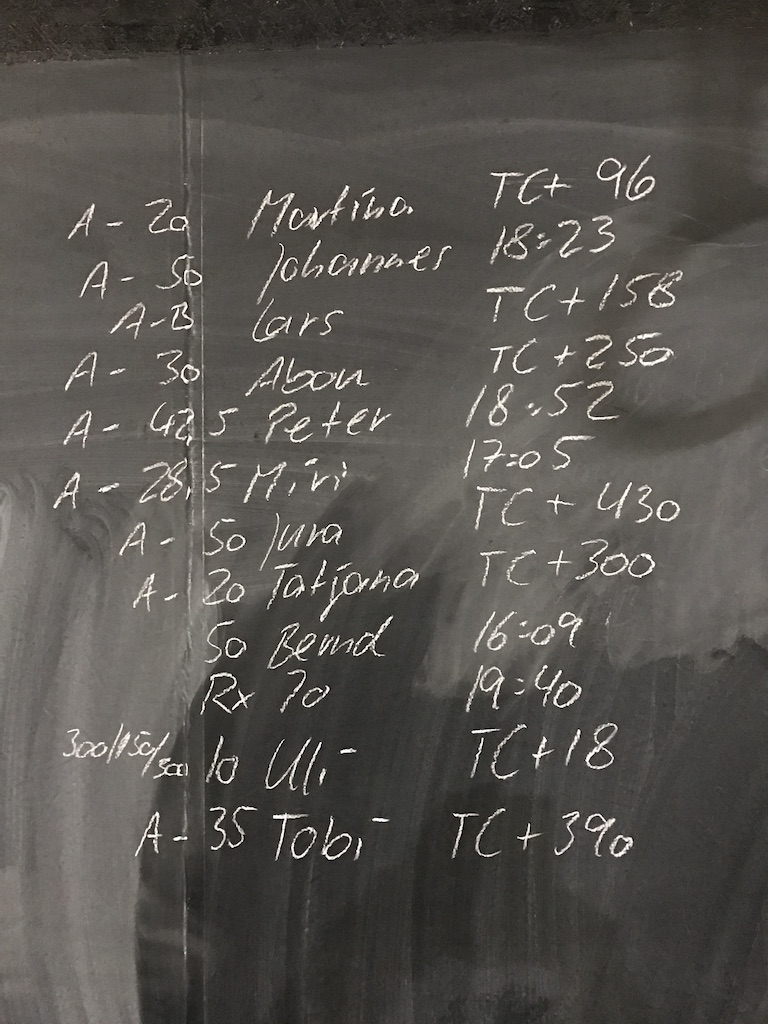 A - 20 Martina TC+ 96
A - 50 Johannes 18:23
A-B Lars TC+158
A - 30 Abou TC+250
A - 42,5 Peter 18:52
A - 28,5 Miri 17:05
A - 50 Jura TC+430
A - 20 Tatjana TC+300
50 Bernd 16:09
Rx 70 19:40
300/150/300 10 Uli TC+18
A - 35 Tobi TC+390